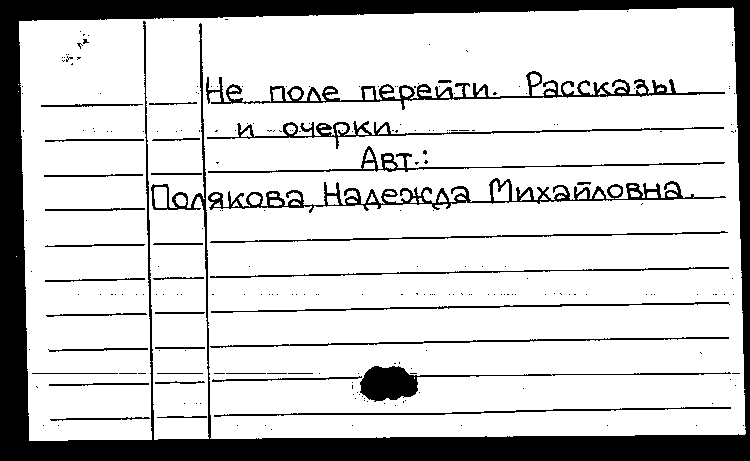 Не поле перейти. Рассказы
и очерки.
Авт.:
Полякова, Надежда Михайловна.